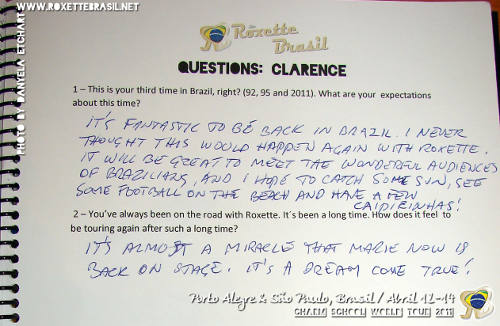 WWW.ROXETTEBRASIL.NET
PHOTO BY DANYELA ETCHART
Roxette
Brasil
QUESTIONS: CLARENCE
1 – This is your third time in Brazil, right? (92, 95 and 2011). What are your expectations
about this time?
IT'S FANTASTIC TO BE BACK IN BRAZIL. I NEVER
THOUGHT THIS WOULD HAPPEN AGAIN WITH ROXETTE.
IT WILL BE GREAT TO MEET THE WONDERFUL AUDIENCES
OF BRAZILIANS, AND I HOPE TO CATCH SOME SUN, SEE
SOME FOOTBALL ON THE BEACH AND HAVE A FEW
CAIPIRINHAS!
2 – You've always been on the road with Roxette. It´s been a long time. How does it feel to
be touring again after such a long time?
IT'S ALMOST A MIRACLE THAT MARIE NOW IS
BACK ON STAGE. IT'S A DREAM COME TRUE!
Porto Alegre & São Paulo, Brasil / Abril 12-14
CHARM SCHOOL WORLD TOUR 2011